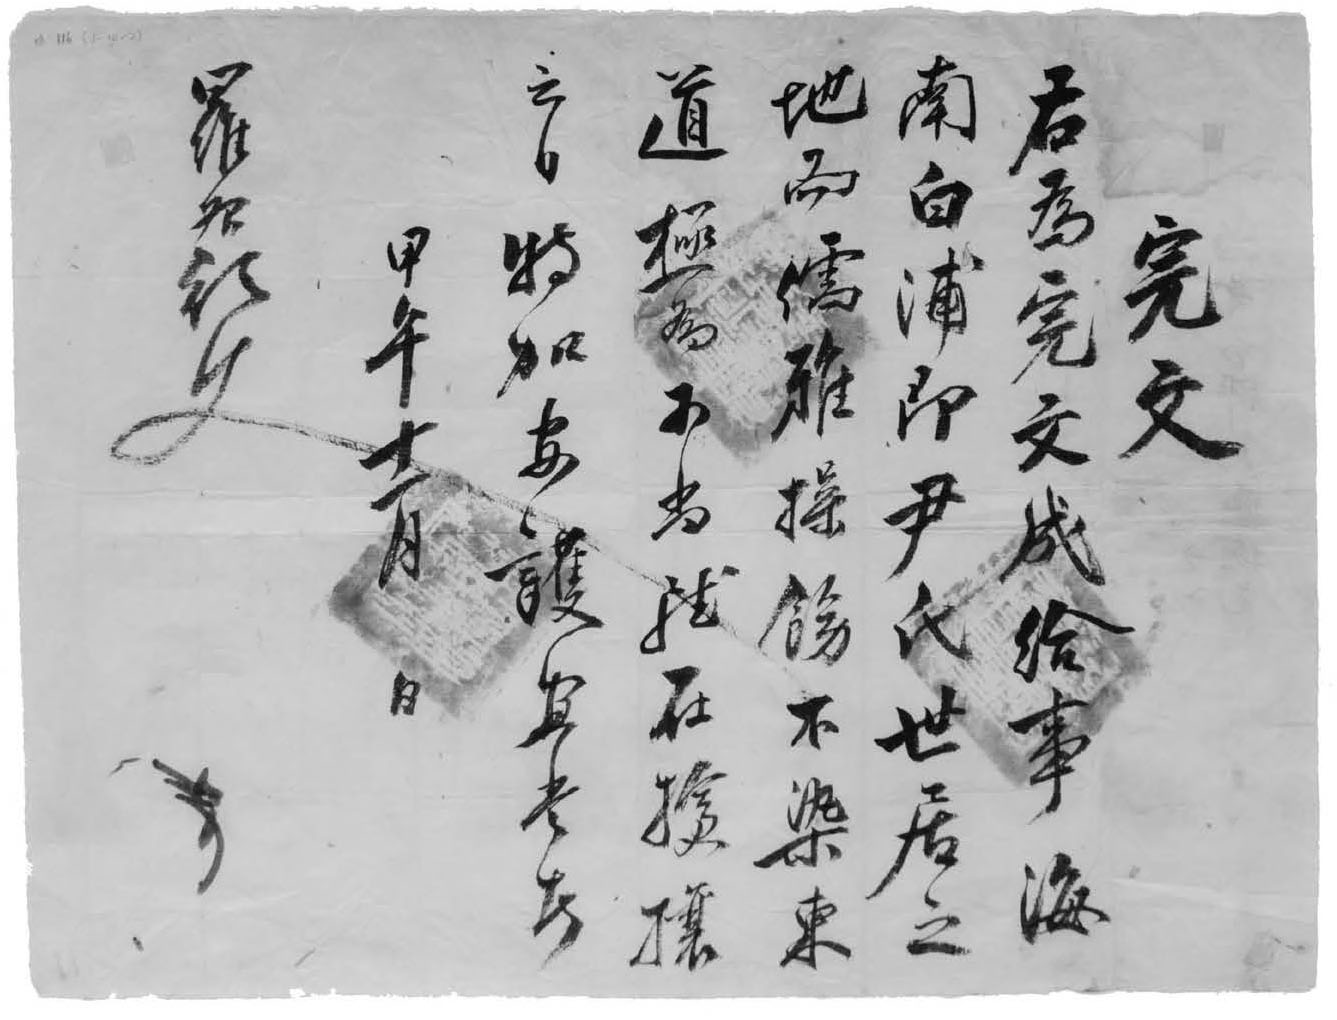 完文
右爲完文成給事 海
南白浦即尹氏世居之
地而儒雅操飭不染東
道極爲可尙雖在搶攘
之日特加安護宜當者
甲午十二月 日
羅招討使